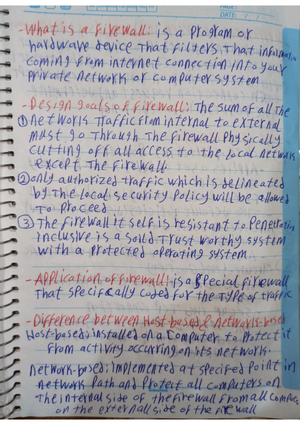 PAGE:
DATE: / /
-What is a Firewall: is a Program or
hardware device That Filters That information
coming From internet connection into your
Private Network or computer system
-Design goals of Firewall: The sum of all The
① Networks Traffic From internal to external
Must go Through The Firewall Physically
cutting off all access to the local Network
except The Firewall
② only authorized traffic which is delineated
by The local security Policy will be allowed
To Proceed
③ The Firewall it self is resistant to Penetration
inclusive is a solid Trust worthy system
with a Protected operating system
-Application of Firewall: is a special Firewall
That specifically coded for The Type of traffic
-Difference between Host-based & Network-based
Host-based: installed on a computer to Protect it
From activity occurring on its network.
Network-based: implemented at specifed Point in
network Path and Protect all computers on
The internal side of the Firewall From all computers
on the externall side of the Firewall